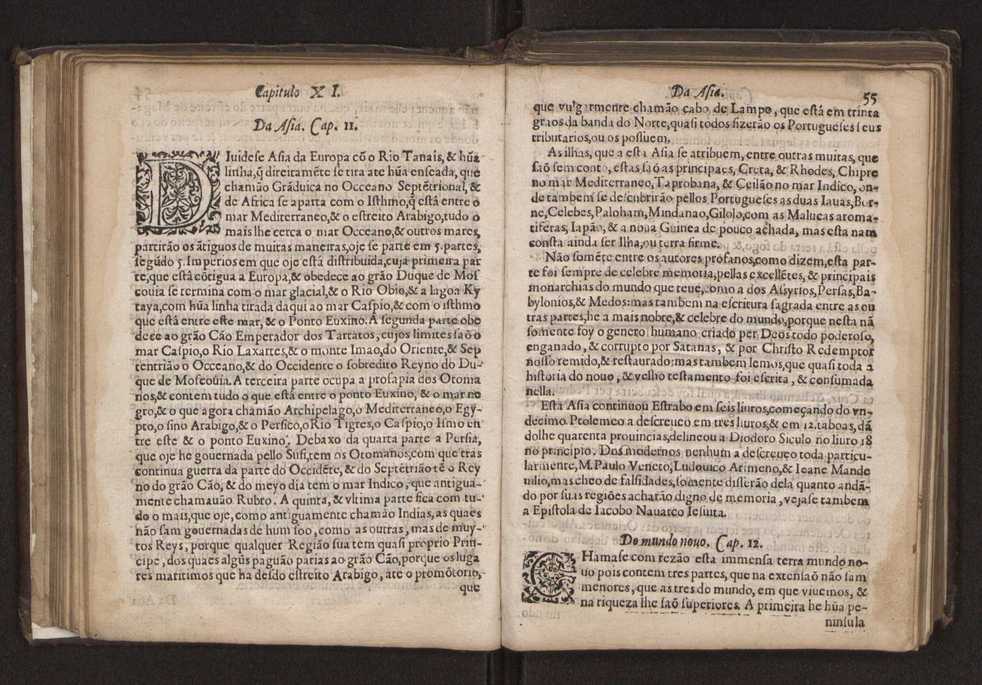 Capitulo XI.
Da Asia. Cap. 11.
DIuidese Asia da Europa cõ o Rio Tanais,& hũa
linha,q̃ direiamẽte se tira ate hũa enseada, que
chamão Grãduica no Occeano Septẽtrional, &
de Africa se aparta com o Isthmo,q̃ está entre o
mar Mediterraneo,& o estreito Arabigo,tudo o
mais lhe cerca o mar Occeano,& outros mares,
partirão os ãtiguos de muitas maneiras,oje se parte em 5.partes,
segũdo 5.Imperios em que oje está distribuida,cuja primeira par
te,que está cõtigua a Europa,& obedece ao grão Duque de Mos
couia se termina com o mar glacial,& o Rio Obio,& a lagoa Ky
taya,com hũa linha tirada daqui ao mar Caspio,& com o isthmo
que está entre este mar, & o Ponto Euxino.A segunda parte obe
dece ao grão Cão Emperador dos Tartatos,cujos limites saõ o
mar Caspio,o Rio Laxartes,& o monte Imao,do Oriente,& Sep
tentrião o Occeano,& do Occidente o sobredito Reyno do Du-
que de Moscouia.A terceira parte ocupa a prosapia dos Otoma
nos,& contem tudo o que está entre o ponto Euxino, & o mar ne
gro,& o que agora chamão Archipelago,o Mediterraneo,o Egy-
pto,o sino Arabigo,& o Persico,o Rio Tigres,o Caspio,o Ismo en
tre este & o ponto Euxino. Debaxo da quarta parte a Persia,
que oje he gouernada pello Sufi,tem os Otomanos,com que tras
continua guerra da parte do Occidẽte, & do Septẽtrião tẽ o Rey
no do grão Cão, & do meyo dia tem o mar Indico, que antigua-
mente chamauão Rubro. A quinta, & vltima parte fica com tu-
do o mais,que oje,como antiguamente chamão Indias,as quaes
não sam gouernadas de hum soo, como as outras, mas de muy-
tos Reys, porque qualquer Região sua tem quasi proprio Prin-
cipe, dos quaes algũs paguão parias ao grão Cão,porque os luga
res maritimos que ha desdo estreito Arabigo, ate o promõtorio,
que
Da Asia.
55
que vulgarmente chamão cabo de Lampo, que está em trinta
graos da banda do Norte,quasi todos fizerão os Portugueses seus
tributarios,ou os possuem.
As ilhas, que a esta Asia se atribuem, entre outras muitas, que
saõ sem conto, estas saõ as principaes, Creta, & Rhodes, Chipre
no mar Mediterraneo,Taprobana, & Ceilão no mar Indico, on-
de tambem se descubrirão pellos Portugueses as duas Iauas,Bor-
ne,Celebes,Paloham,Mindanao,Gilolo,com as Malucas aroma-
tiferas, Iapão, & a noua Guinea de pouco achada, mas esta nam
consta ainda ser Ilha,ou terra firme.
Não somẽte entre os autores profanos,como dizem,esta par-
te foi sempre de celebre memoria,pellas excellẽtes, & principais
monarchias do mundo que teue,como a dos Assyrios,Persas,Ba-
bylonios,& Medos:mas tambem na escritura sagrada entre as ou
tras partes,he a mais nobre,& celebre do mundo,porque nesta nã
somente foy o genero humano criado per Deos todo poderoso,
enganado, & corrupto por Satanas, & por Christo Redemptor
nosso remido,& restaurado:mas tambem lemos,que quasi toda a
historia do nouo, & velho testamento foi escrita, & consumada
nella.
Esta Asia continuou Estrabo em seis liuros,começando do vn-
decimo.Ptolemeo a descreueo em tres liuros,& em 12.taboas,dã
dolhe quarenta prouincias,delineou a Diodoro Siculo no liuro 18
no principio. Dos modernos nenhum a descreueo toda particu-
larmente, M.Paulo Veneto,Ludouico Arimeno,& Ieane Mande
uilio,mas cheo de falsidades,somente disserão dela quanto andã-
do por suas regiões acharão digno de memoria , vejase tambem
a Epistola de Iacobo Nauarco Iesuita.
Do mundo nouo. Cap. 12.
CHamase com rezão esta immensa terra mundo no-
uo pois contem tres partes, que na extensaõ não sam
menores,que as tres do mundo, em que viuemos, &
na riqueza lhe saõ superiores. A primeira he hũa pe-
ninsula